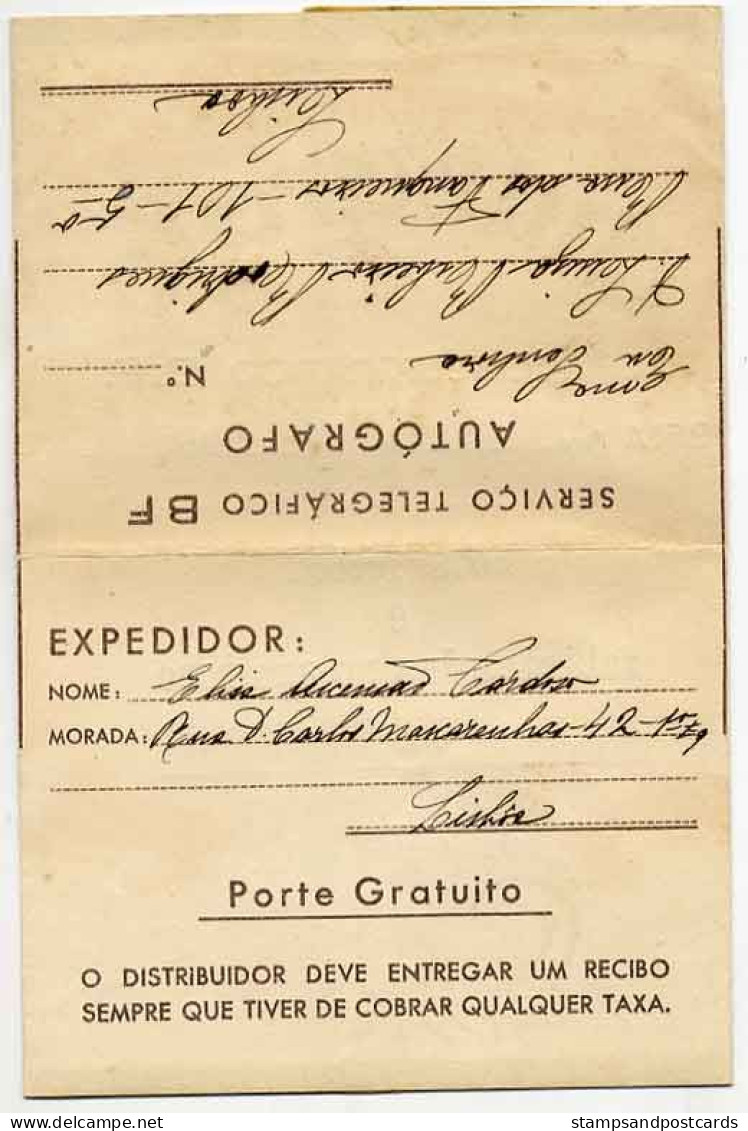 SERVIÇO TELEGRÁFICO BF
AUTÓGRAFO
N.º
Exma Senhora
D. Luiza Ribeiro Rodrigues
Rua dos Fanqueiros - 101 - 5º
Lisboa
EXPEDIDOR:
NOME: Elisa Cardoso
MORADA: Rua D. Carlos Mascarenhas - 42 - 1º
Lisbôa
Porte Gratuito
O DISTRIBUIDOR DEVE ENTREGAR UM RECIBO
SEMPRE QUE TIVER DE COBRAR QUALQUER TAXA.
stampsandpostcards